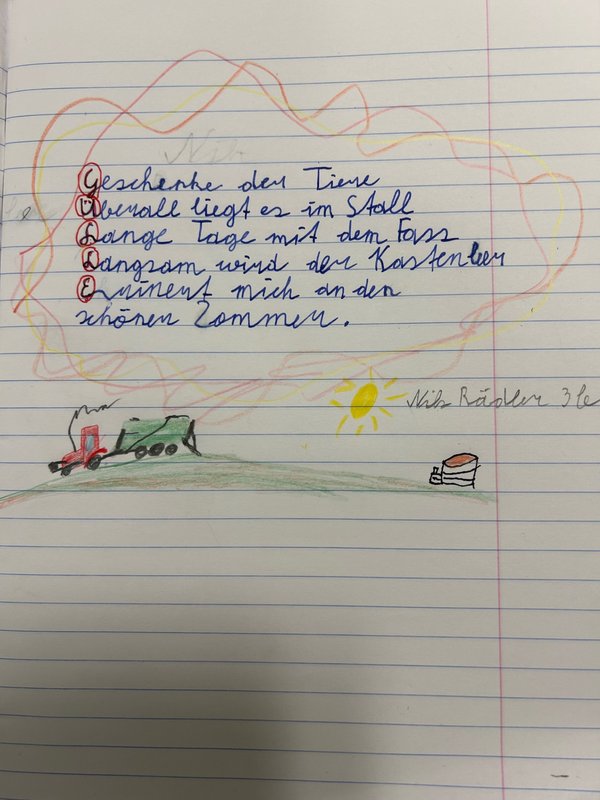 Geschenke der Tiere
Überall liegt es im Stall
Lange Tage mit dem Fass
Langsam wird der Kasten leer
Erinnert mich an den
schönen Sommer.
Nils Rädler 3b